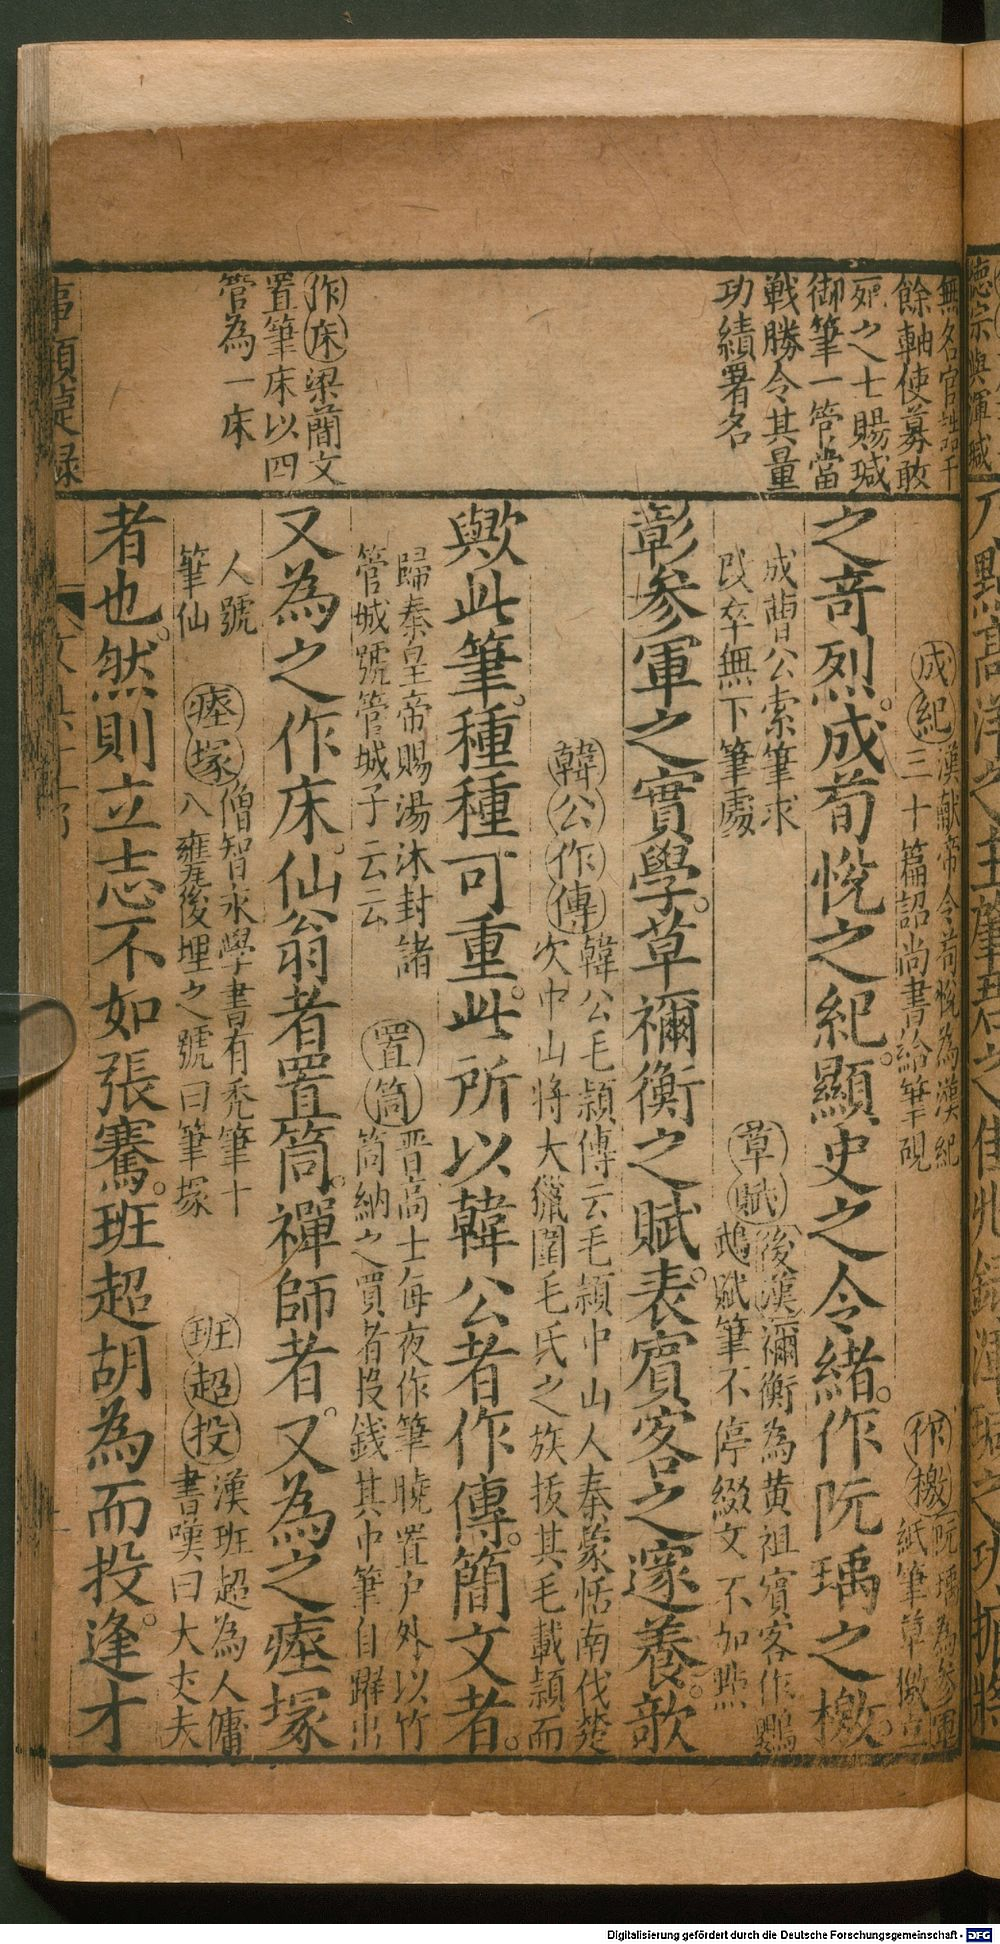 德宗與渾瑊
無名官誥千
餘軸使募敢
死之士賜瑊
御筆一管當
戰勝令其量
功績署名
作床梁蕳文
置筆床以四
管為一床
事類捷録
成紀漢献帝令荀悅為漢紀
三十篇詔尚書給筆硯
作檄阮瑀為參軍
紙筆草檄立
之竒烈。成荀悅之紀。顯史之令緒。作阮瑀之檄。
成曹公索筆求
改卒無下筆處
草賦後漢禰衡為黄祖賓客作鸚
鵡賦筆不停綴文不加點
彰參軍之實學。草禰衡之賦。表賓客之邃養。歆
韓公作傳韓公毛頴傳云毛頴中山人秦蒙恬南伐楚
次中山將大獵圍毛氏之族拔其毛載頴而
歟此筆。種種可重。此所以韓公者作傳。簡文者。
歸秦皇帝賜湯沐封諸
管城號管城子云云
置筒晋高士每夜作筆曉置户外以竹
筒納之買者投錢其中筆自躍出
又為之作床。仙翁者置筒。禪師者。又為之瘞塚
人號
筆仙
瘞塚僧智永學書有秃筆十
八甕後埋之號曰筆塚
班超投漢班超為人傭
書嘆曰大丈夫
者也。然則立志不如張騫。班超胡為而投。逢才
Digitalisierung gefördert durch die Deutsche Forschungsgemeinschaft - DFG